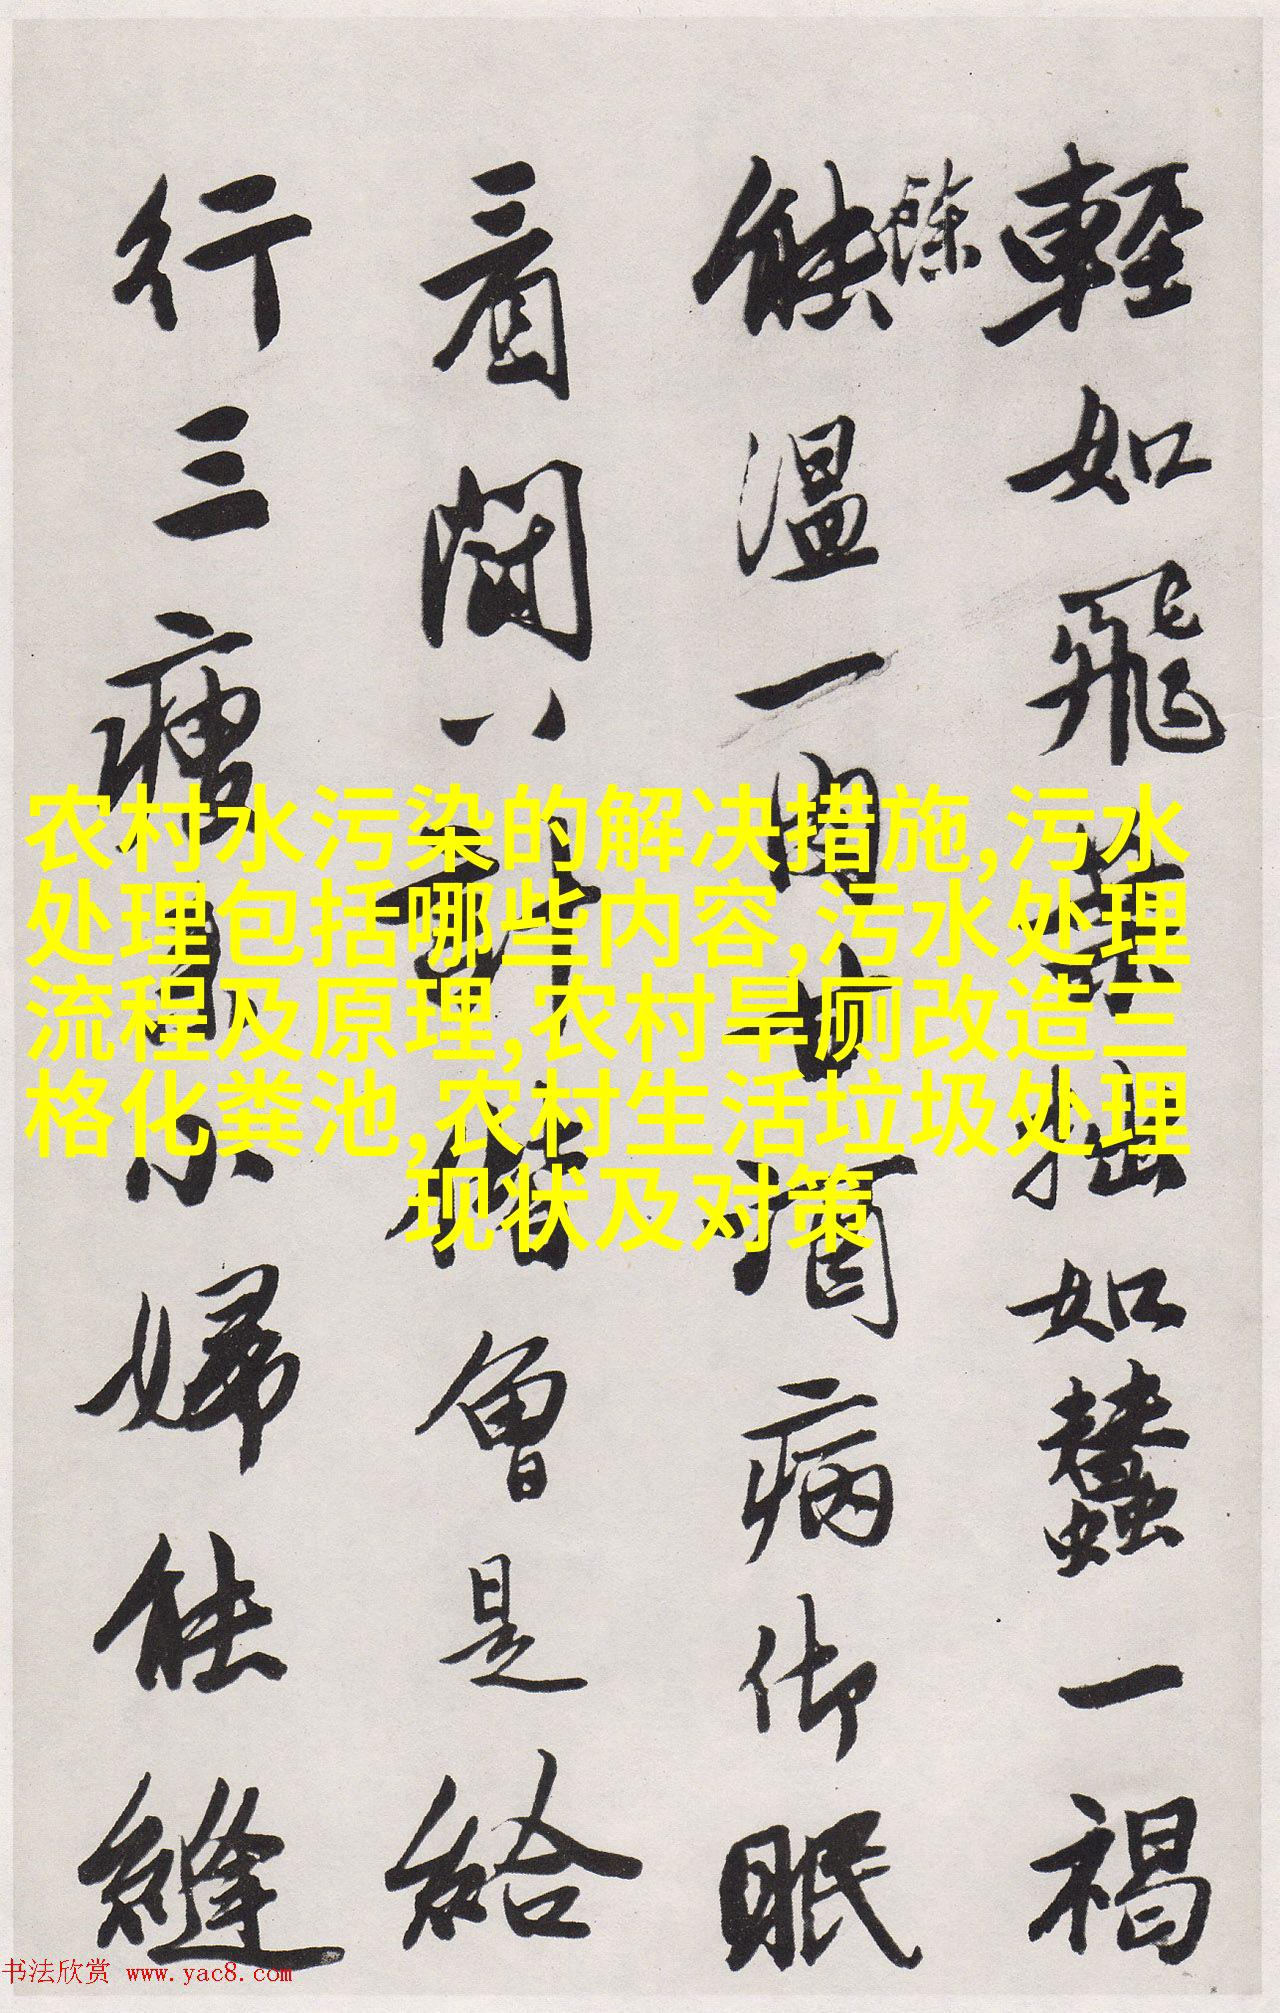 輕如飛拙如蠶一褐
餘
能溫一肉病御眠
看八會是給
行三小婦能縫
农村水污染的解决措施,污水
处理包括哪些内容,污水处理
流程及原理,农村旱厕改造三
格化粪池,农村生活垃圾处理
现状及对策
书法欣赏 www.yac8.com